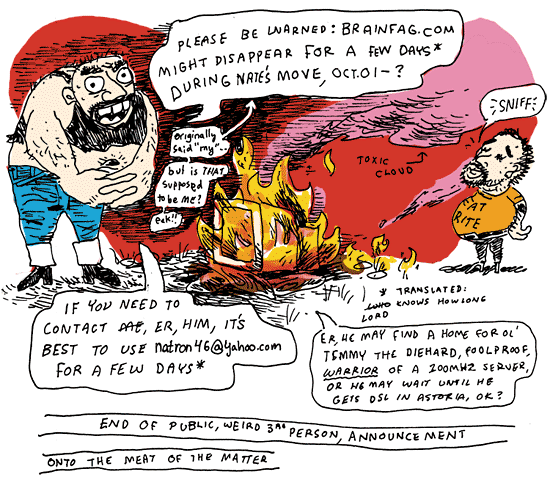 PLEASE BE WARNED: BRAINFAG.COM
MIGHT DISAPPEAR FOR A FEW DAYS*
DURING NATE'S MOVE, OCT.01-?
originally
said "my"--
but is THAT
supposed
to be ME?
eek!!
TOXIC
CLOUD
SNIFF
EAT
RITE
IF YOU NEED TO
CONTACT ME, ER, HIM, IT'S
BEST TO USE natron46@yahoo.com
FOR A FEW DAYS*
* TRANSLATED:
WHO KNOWS HOW LONG
LORD
ER, HE MAY FIND A HOME FOR OL'
TEMMY THE DIEHARD, FOOLPROOF,
WARRIOR OF A 200MHZ SERVER,
OR HE MAY WAIT UNTIL HE
GETS DSL IN ASTORIA, OK?
END OF PUBLIC, WEIRD 3RD PERSON, ANNOUNCEMENT
ONTO THE MEAT OF THE MATTER